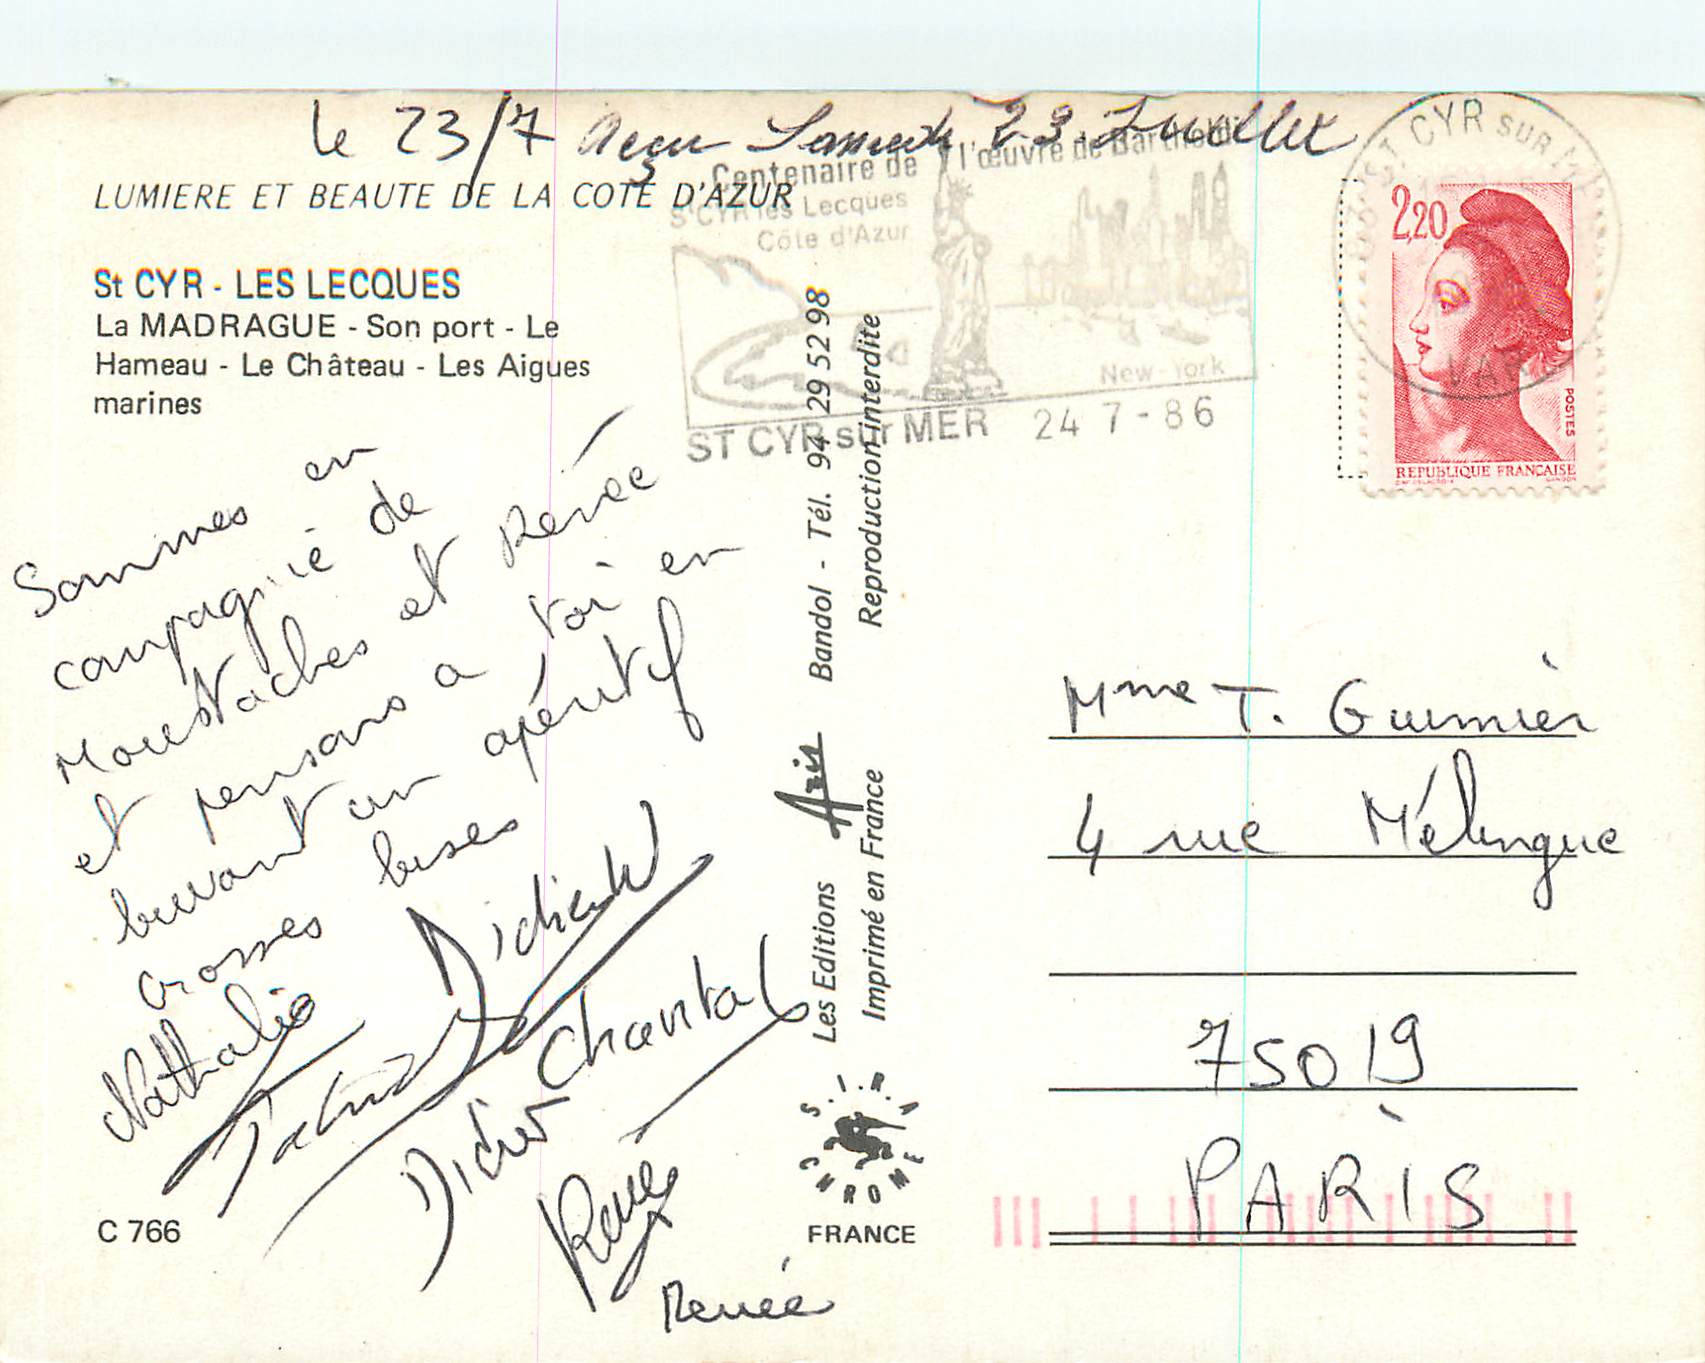 le 23/7 Samedi 23 Juillet
LUMIERE ET BEAUTE DE LA COTE D'AZUR
St CYR - LES LECQUES
La MADRAGUE - Son port - Le
Hameau - Le Château - Les Aigues
marines
Centenaire de l'œuvre de Bartholdi
St CYR les Lecques
Côte d'Azur
New-York
ST CYR sur MER 24 7 - 86
83 ST CYR SUR MER
VAR
2,20
POSTES
REPUBLIQUE FRANÇAISE
Sommes en
compagnie de
Moustaches et Renée
et pensons a toi en
buvant un apéritif
Grosses bises
Nathalie
Didier
Chantal
Didier
Renée
C 766
Les Editions Azis Bandol - Tél. 94 29 52 98
Imprimé en France Reproduction interdite
S.I.R.A
CHROME
FRANCE
Mme T. Guimier
4 rue Mélingue
75019
PARIS